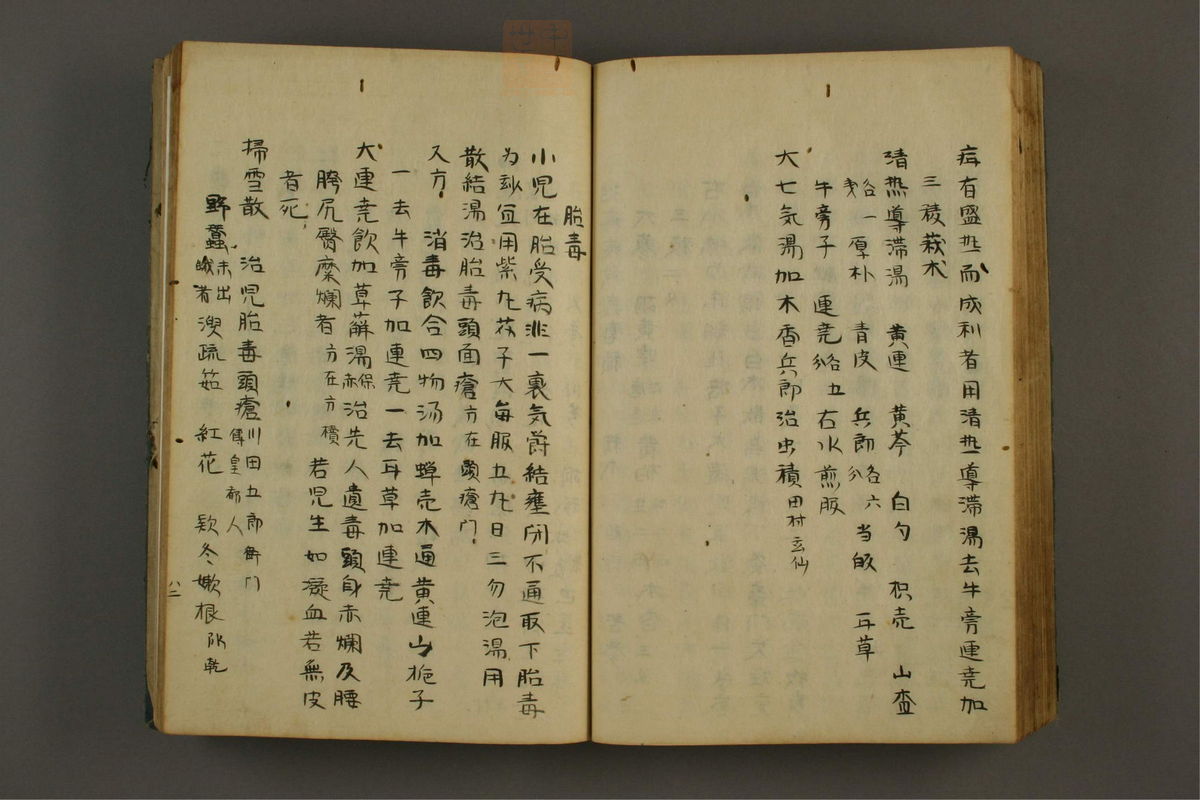 疳有盛熱而成利者用清熱導滞湯去牛旁連売加
三稜莪朮
清熱導滞湯 黄連 黄芩 白勺 枳売 山査
各一 厚朴 青皮 兵郎各六 当皈 耳草
牛旁子 連売 各五 右水煎服
大七気湯加木香兵郎治虫積 田村玄仙
胎毒
小児在胎受病非一裏気欝結壅閉不通取下胎毒
為 宜用紫丸 子大毎服五丸日三勿泡湯用
散結湯治胎毒頭面瘡 方在頭瘡門
又方 消毒飲合四物汤加蝉売木通黄連山梔子
一去牛旁子加連売一去耳草加連売
大連売飲加草薢湯 保赤 治先人遺毒頭身赤爛及腰
胯尻臀糜爛者 方在方積 若児生如凝血若無皮
者死
掃雪散 治児胎毒頭瘡 川田五郎衛門 傳皇都人
野蚕 未出蛾者 溲疏茹 紅花 欵冬嫩根 陰乾